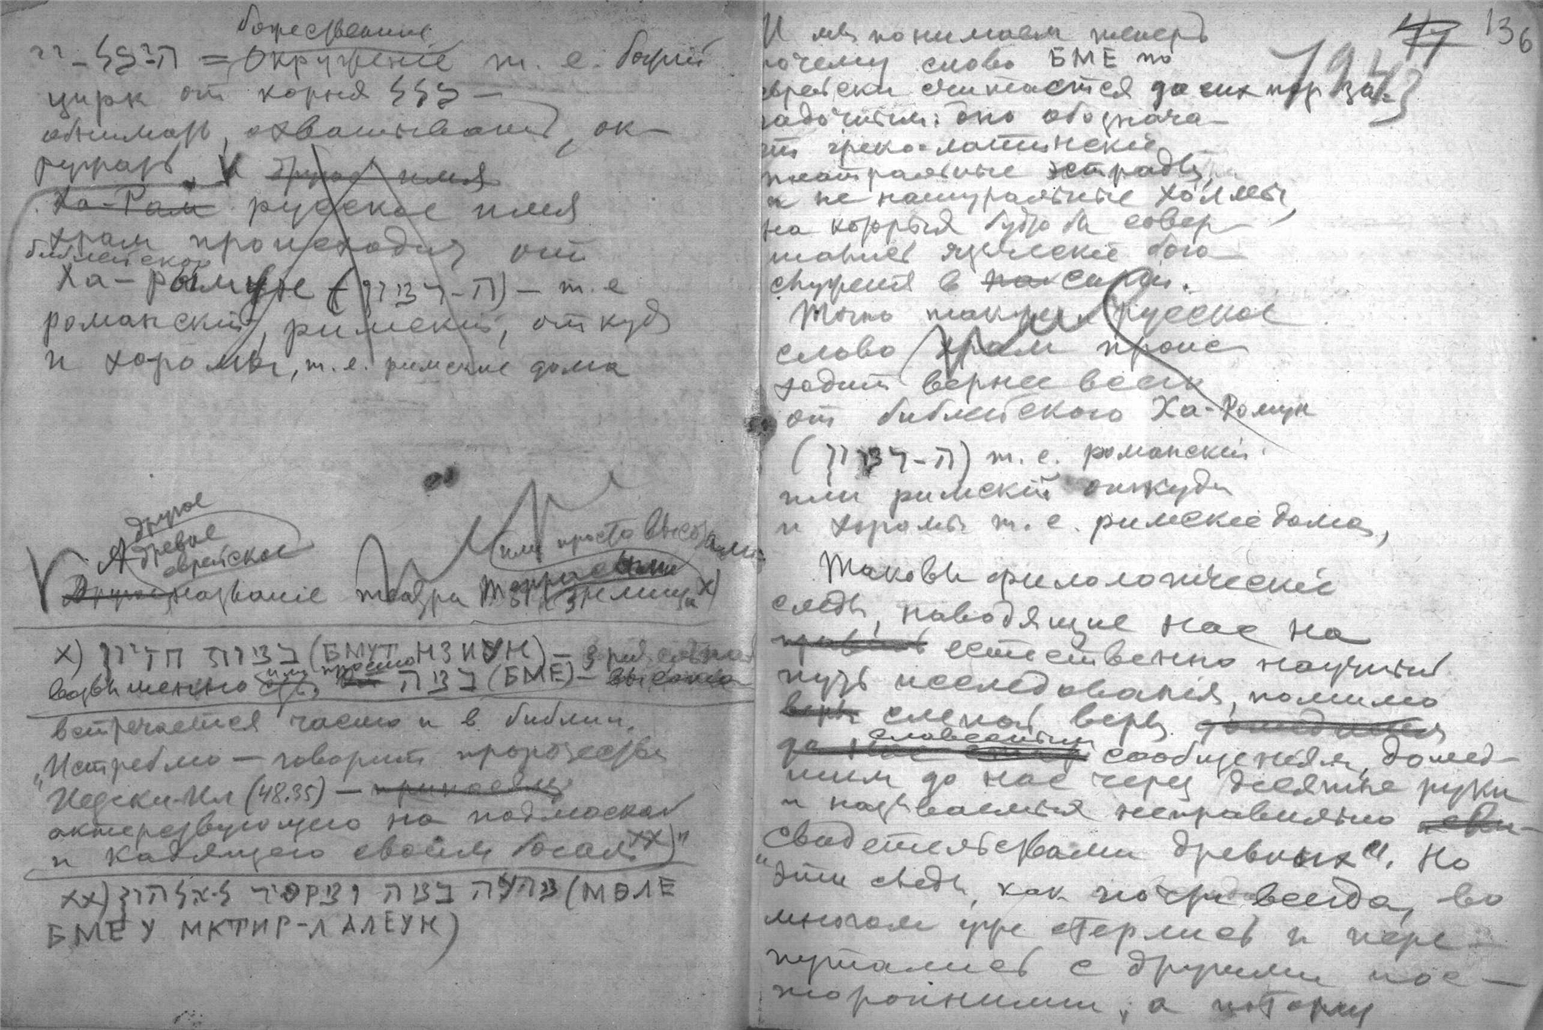 божественный
= Окружение т. е. божий
цирк от корня
обнимать, охватывать, ок-
ружать. другое имя
Ха-Рам русское имя
храм происходит от
библейского
Ха-Ромун т. е
романский, римский, откуда
и хоромы, т. е. римские дома
другое
А древнее
еврейское
или просто высотами
Другое название театра зрелища x)
x) במות חזיון (БМУТ НЗИУН) —
возвышенно или просто במה (БМЕ) — высота
встречается часто и в библии.
„Истреблю — говорит пророчество
Иезеки-Ил (48.35) — приносящ
актерствующего на подмосках
и кадящего своим богам xx)"
xx) מעלה במה ומקטיר לאלהיו (МӨЛЕ
БМЕ У МКТИР-Л АЛЕУН)
136
1943
И мы понимаем теперь
почему слово БМЕ по
еврейски считается до сих пор за-
гадочным: оно обознача-
ет греко-латинские
театральные эстрады,
а не натуральные холмы,
на которых будто бы совер-
шались языческие бого
служения
Точно также и русское
слово храм проис
ходит вернее всего
от библейского Ха-Ромун
т. е. романский
или римский откуда
и хоромы т. е. римские дома,
Таковы филологические
следы, наводящие нас на
естественно научный
путь исследования, помимо
слепой веры
словесным
сообщениям, дошед-
шим до нас через десятые руки
и называемыя неправильно
„свидетельствами древних". Но
эти следы, как почти всегда, во
многом уже стерлись и пере-
путались с другими пос-
торонними, а потому